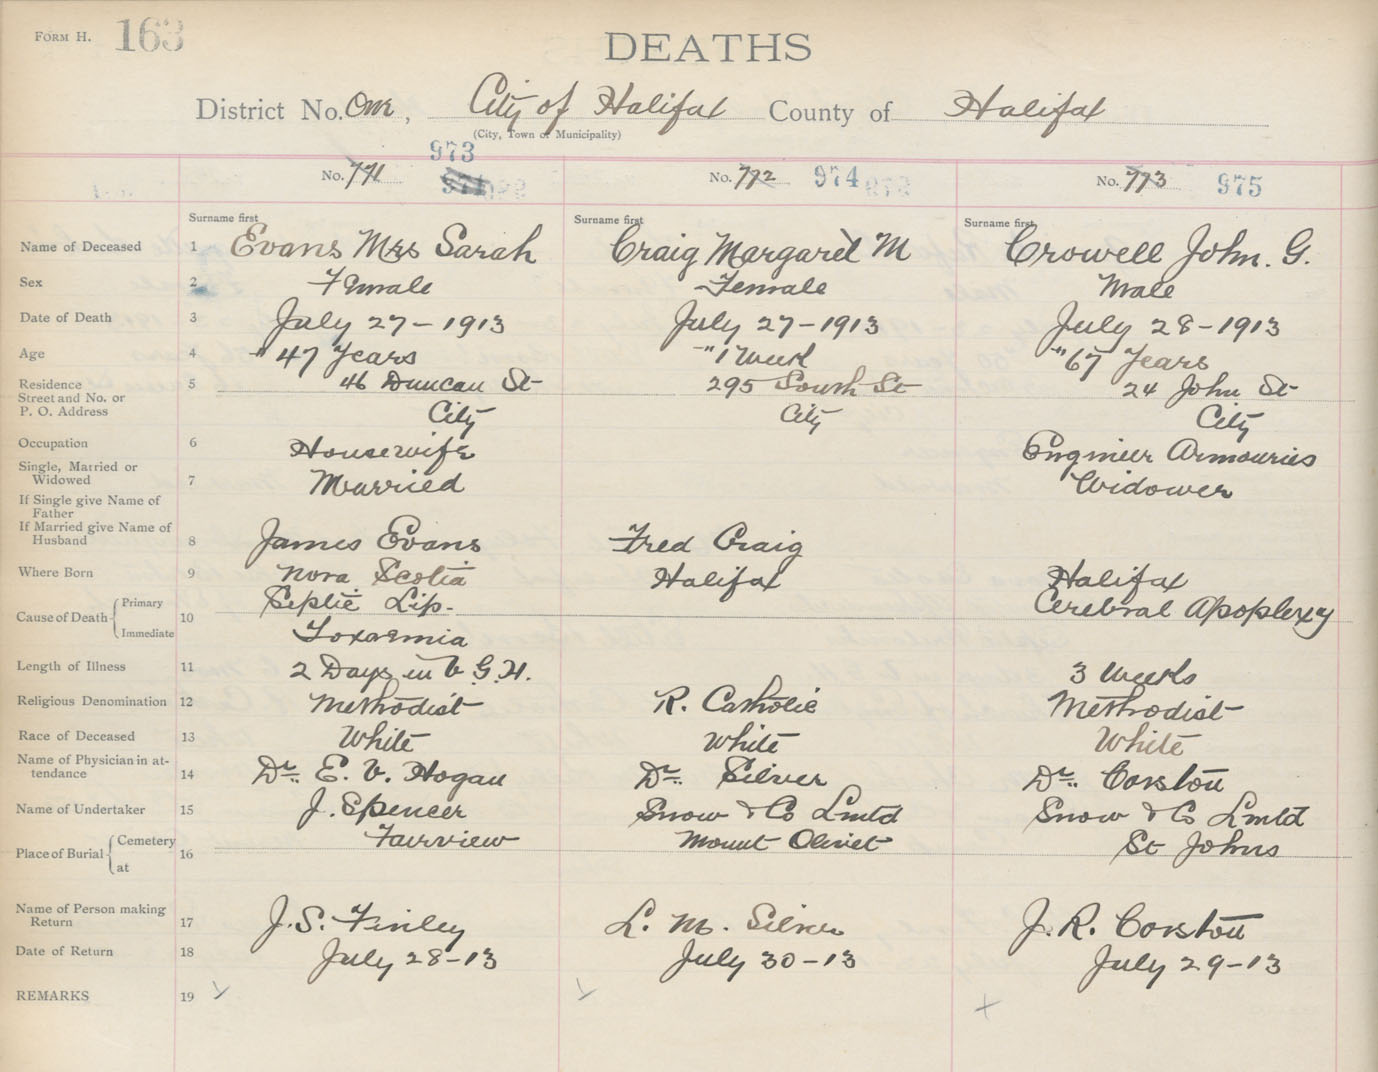 FORM H. 163
DEATHS
District No. One, City of Halifax County of Halifax
(City, Town or Municipality)
973
No. 771 No. 772 974 No. 773 975
Surname first Surname first Surname first
Name of Deceased 1 Evans Mrs Sarah Craig Margaret M Crowell John. G.
Sex 2 Female Female Male
Date of Death 3 July 27-1913 July 27-1913 July 28-1913
Age 4 " 47 Years " 1 Week " 67 Years
Residence 5 46 Duncan St 295 South St 24 John St
Street and No. or
P. O. Address City City City
Occupation 6 Housewife Engineer Armouries
Single, Married or
Widowed 7 Married Widower
If Single give Name of
Father
If Married give Name of
Husband 8 James Evans Fred Craig
Where Born 9 Nova Scotia Halifax Halifax
Cause of Death { Primary Septic Lip- Cerebral Apoplexy
10
Immediate Toxaemia
Length of Illness 11 2 Days in V.G.H. 3 Weeks
Religious Denomination 12 Methodist R. Catholic Methodist
Race of Deceased 13 White White White
Name of Physician in at-
tendance 14 Dr. E. V. Hogan Dr. Silver Dr. Corston
Name of Undertaker 15 J. Spencer Snow & Co Lmtd Snow & Co Lmtd
Place of Burial { Cemetery 16 Fairview Mount Olivet St Johns
at
Name of Person making
Return 17 J.S. Finley L. M. Silver J. R. Corston
Date of Return 18 July 28-13 July 30-13 July 29-13
REMARKS 19